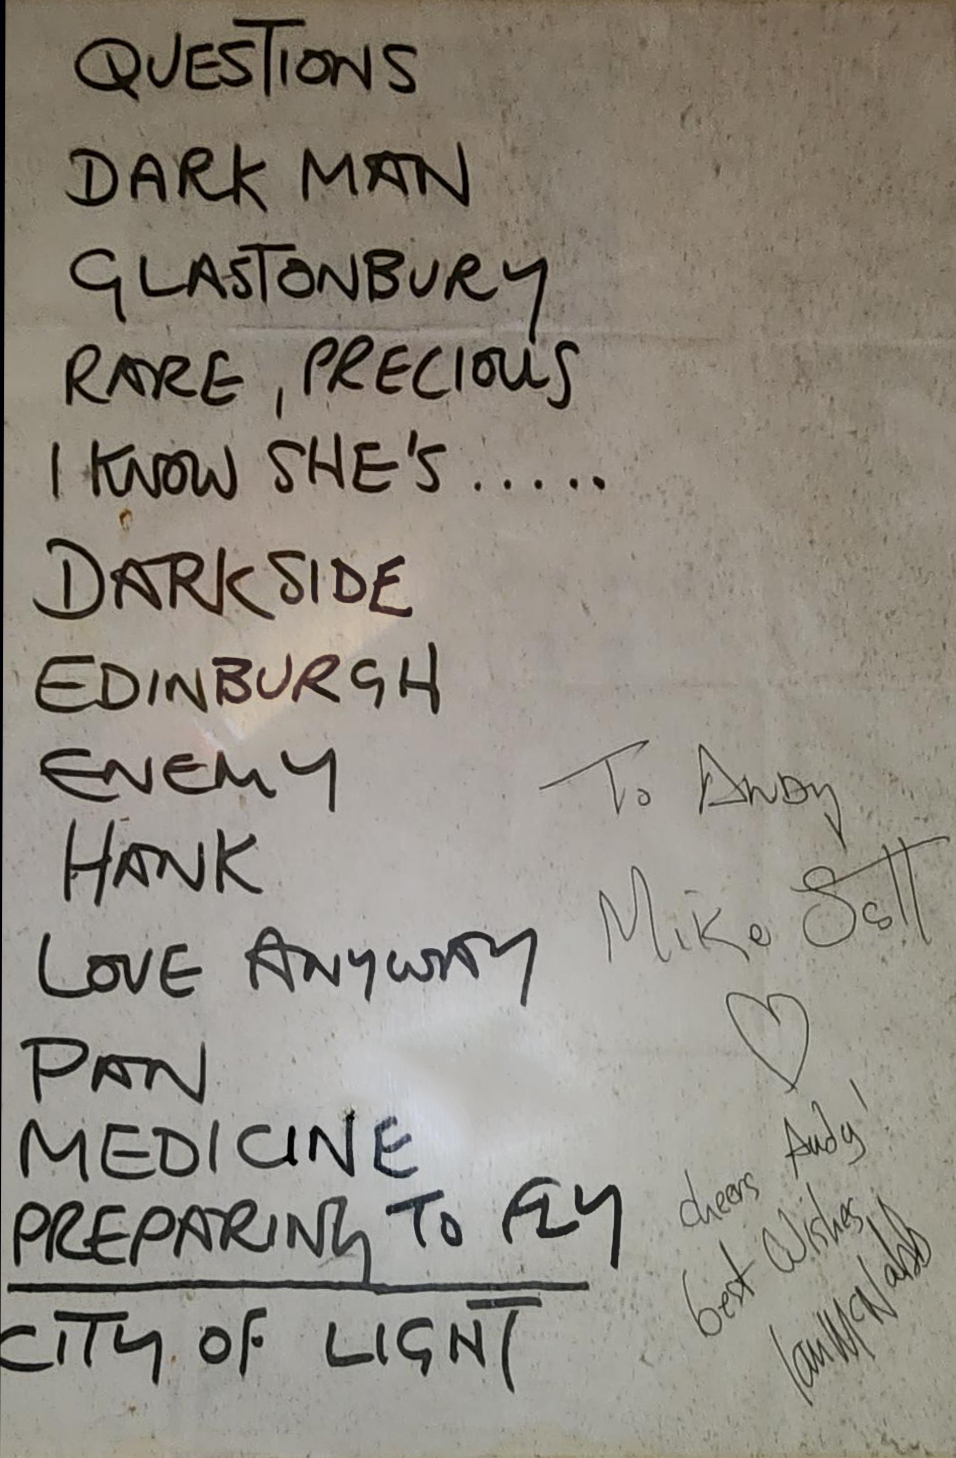 QUESTIONS
DARK MAN
GLASTONBURY
RARE, PRECIOUS
I KNOW SHE'S.....
DARKSIDE
EDINBURGH
ENEMY
HANK
LOVE ANYWAY
PAN
MEDICINE
PREPARING TO FLY
CITY OF LIGHT
To Andy
Mike Scott
cheers Andy!
best Wishes
Ian McNabb